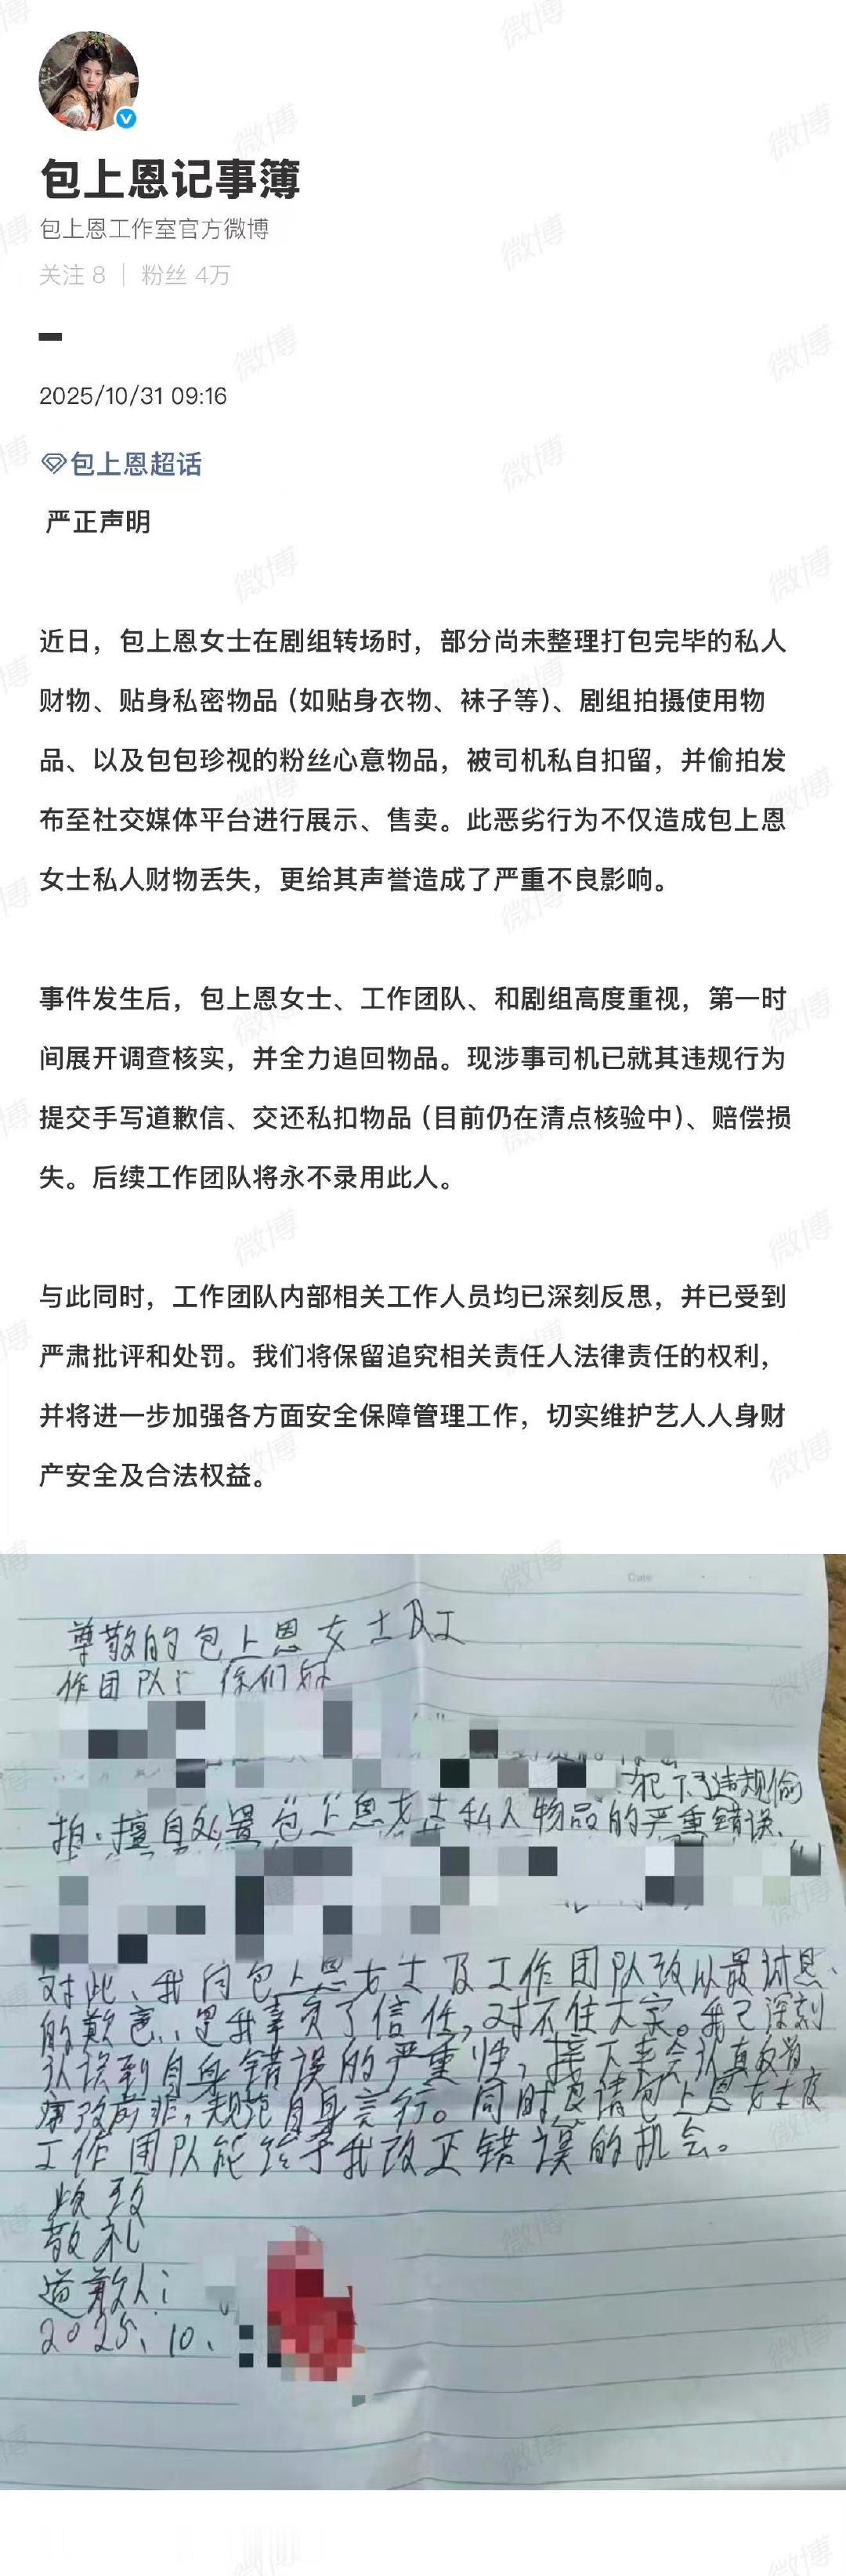 包上恩记事簿
包上恩工作室官方微博
关注 8 | 粉丝 4万
2025/10/31 09:16
包上恩超话
严正声明
近日，包上恩女士在剧组转场时，部分尚未整理打包完毕的私人
财物、贴身私密物品（如贴身衣物、袜子等）、剧组拍摄使用物
品、以及包包珍视的粉丝心意物品，被司机私自扣留，并偷拍发
布至社交媒体平台进行展示、售卖。此恶劣行为不仅造成包上恩
女士私人财物丢失，更给其声誉造成了严重不良影响。
事件发生后，包上恩女士、工作团队、和剧组高度重视，第一时
间展开调查核实，并全力追回物品。现涉事司机已就其违规行为
提交手写道歉信、交还私扣物品（目前仍在清点核验中）、赔偿损
失。后续工作团队将永不录用此人。
与此同时，工作团队内部相关工作人员均已深刻反思，并已受到
严肃批评和处罚。我们将保留追究相关责任人法律责任的权利，
并将进一步加强各方面安全保障管理工作，切实维护艺人人身财
产安全及合法权益。
Date
尊敬的包上恩女士及工
作团队：你们好
犯下了违规偷
拍、擅自处置包上恩女士私人物品的严重错误、
对此、我向包上恩女士及工作团队致以最
的歉意，是我辜负了信任，对不住大家。我已深刻
认误到自身错误的严重性，接下来会认真
痛改前非，规范自身言行。同时恳请包上恩女士及
工作团队能给予我改正错误的机会。
致
敬礼
道歉人：
2025、10、
微博